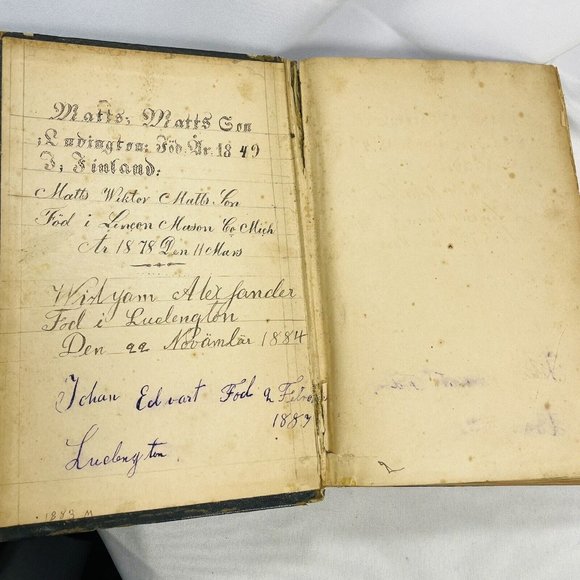 Matts, Matts Son
;Ludington; Föd. År. 18 49
I; Finland:
Matts Wiktor Matts. Son
Föd i Lincon Mason Co, Mich
År 1878 Den 11 Mars
Wilyam Alexsander
Fod i Ludengton
Den 22 Novämbär 1884
Johan Edvart Föd 2
Ludengton.
1883 M